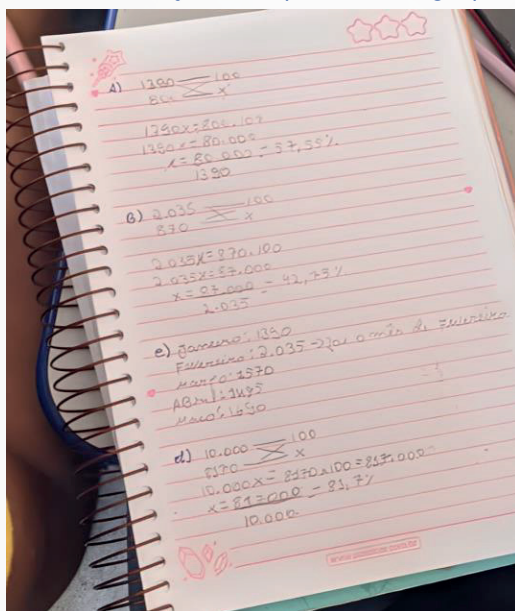 A) 1390 100
800 x
1390x=800.100
1390x=80.000
x=80.000=57,55%
1390
B) 2.035 100
870 x
2.035x=870.100
2.035x=87.000
x=87.000=42,75%
2.035
c) Janeiro: 1390
Fevereiro: 2.035 o mês de Fevereiro
Março: 1570
Abril: 1495
Maio: 1690
d) 10.000 100
8170 x
10.000x=8170.100=817.000
x=817.000=81,7%
10.000